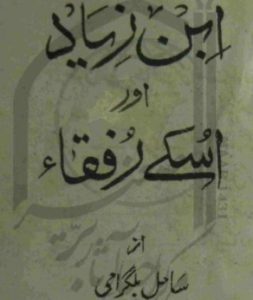 ابن زیاد
اور
اسکے رُفقاء
از
ساحل بلگرامی